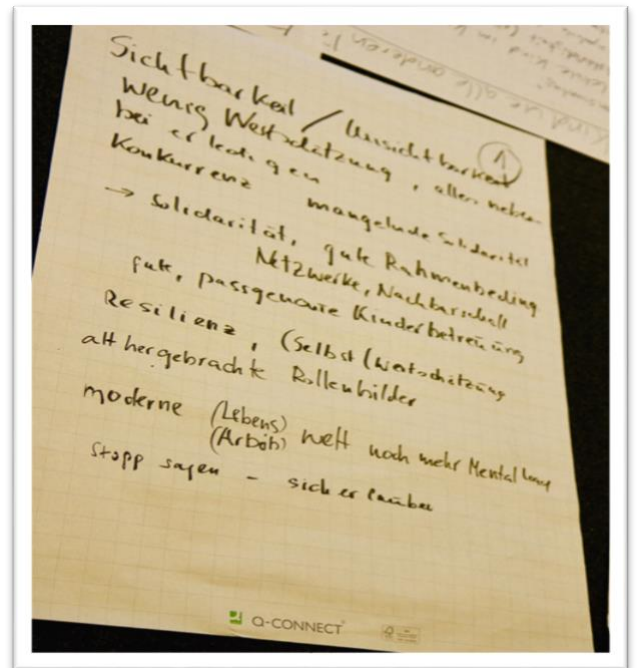 Sichtbarkeit / Unsichtbarkeit
1
wenig Wertschätzung, alles neben-
bei erledigen
Konkurrenz mangelnde Solidarität
→ Solidarität, gute Rahmenbeding
Netzwerke, Nachbarschaft
gute, passgenaue Kinderbetreuung
Resilienz, (Selbst(wertschätzung
althergebrachte Rollenbilder
moderne (Lebens)
(Arbeits) welt noch mehr Mental
Stopp sagen – sich erlauben
Q-CONNECT